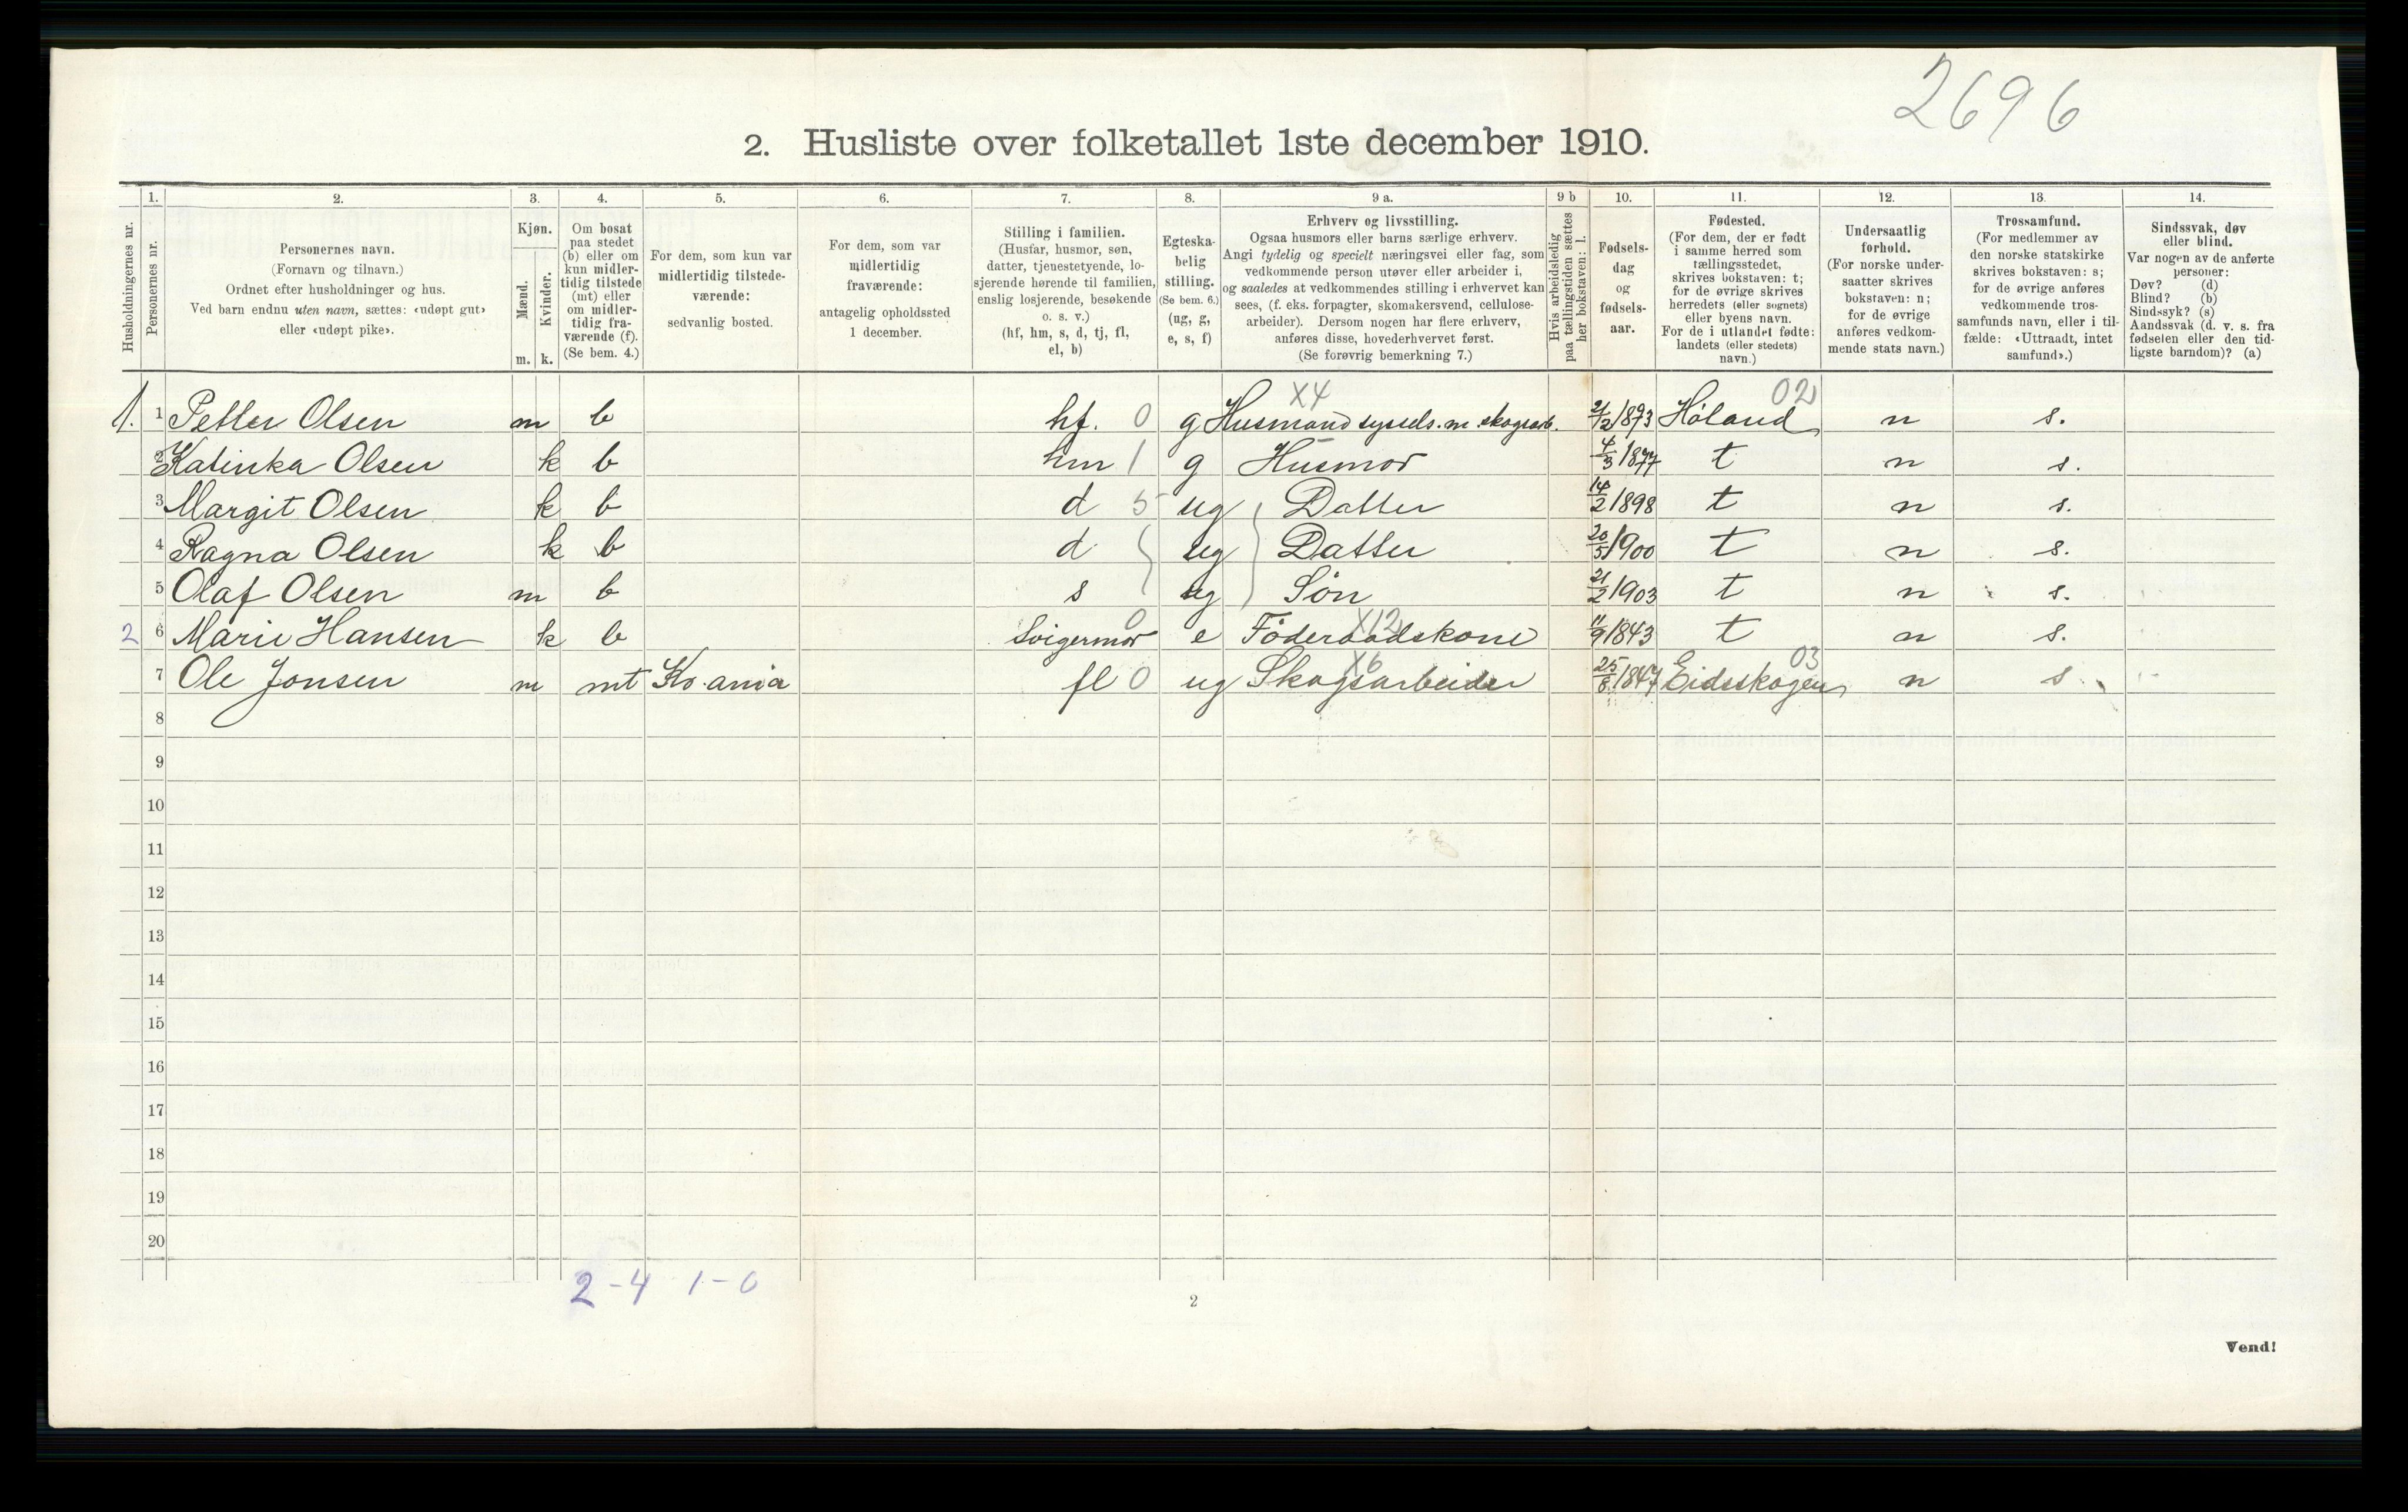 2696
2. Husliste over folketallet 1ste december 1910.
Husholdningernes nr.
1.
Personernes nr.
2.
Personernes navn.
(Fornavn og tilnavn.)
Ordnet efter husholdninger og hus.
Ved barn endnu uten navn, sættes: «udøpt gut»
eller «udøpt pike».
3.
Kjøn.
Mænd.
m.
Kvinder.
k.
4.
Om bosat
paa stedet
(b) eller om
kun midler-
tidig tilstede
(mt) eller
om midler-
tidig fra-
værende (f).
(Se bem. 4.)
5.
For dem, som kun var
midlertidig tilstede-
værende:
sedvanlig bosted.
6.
For dem, som var
midlertidig
fraværende:
antagelig opholdssted
1 december.
7.
Stilling i familien.
(Husfar, husmor, søn,
datter, tjenestetyende, lo-
sjerende hørende til familien,
enslig losjerende, besøkende
o. s. v.)
(hf, hm, s, d, tj, fl,
el, b)
8.
Egteska-
belig
stilling.
(Se bem. 6.)
(ug, g,
e, s, f)
9 a.
Erhverv og livsstilling.
Ogsaa husmors eller barns særlige erhverv.
Angi tydelig og specielt næringsvei eller fag, som
vedkommende person utøver eller arbeider i,
og saaledes at vedkommendes stilling i erhvervet kan
sees, (f. eks. forpagter, skomakersvend, cellulose-
arbeider). Dersom nogen har flere erhverv,
anføres disse, hovederhvervet først.
(Se forøvrig bemerkning 7.)
9 b
Hvis arbeidsledig
paa tællingstiden sættes
her bokstaven: l.
10.
Fødsels-
dag
og
fødsels-
aar.
11.
Fødested.
(For dem, der er født
i samme herred som
tællingsstedet,
skrives bokstaven: t;
for de øvrige skrives
herredets (eller sognets)
eller byens navn.
For de i utlandet fødte:
landets (eller stedets)
navn.)
12.
Undersaatlig
forhold.
(For norske under-
saatter skrives
bokstaven: n;
for de øvrige
anføres vedkom-
mende stats navn.)
13.
Trossamfund.
(For medlemmer av
den norske statskirke
skrives bokstaven: s;
for de øvrige anføres
vedkommende tros-
samfunds navn, eller i til-
fælde: «Uttraadt, intet
samfund».)
14.
Sindssvak, døv
eller blind.
Var nogen av de anførte
personer:
Døv? (d)
Blind? (b)
Sindssyk? (s)
Aandssvak (d. v. s. fra
fødselen eller den tid-
ligste barndom)? (a)
X4 02
1. 1 Petter Olsen m b hf. 0 g Husmand syssels. m. skogsarb. 21/2 1873 Høland n s.
2 Katinka Olsen k b hm 1 g Husmor 4/3 1877 t n s.
3 Margit Olsen k b d 5 ug Datter 14/2 1898 t n s.
4 Ragna Olsen k b d ug Datter 20/5 1900 t n s.
5 Olaf Olsen m b s ug Søn 21/2 1903 t n s.
2 6 Marie Hansen k b Svigermor 0 e Föderaadskone X12 11/9 1843 t n s.
X6 03
7 Ole Jonsen m mt Kr.ania fl 0 ug Skogsarbeider 25/8 1847 Eidsskogen n s
8
9
10
11
12
13
14
15
16
17
18
19
20
2-4 1-0
2
Vend!